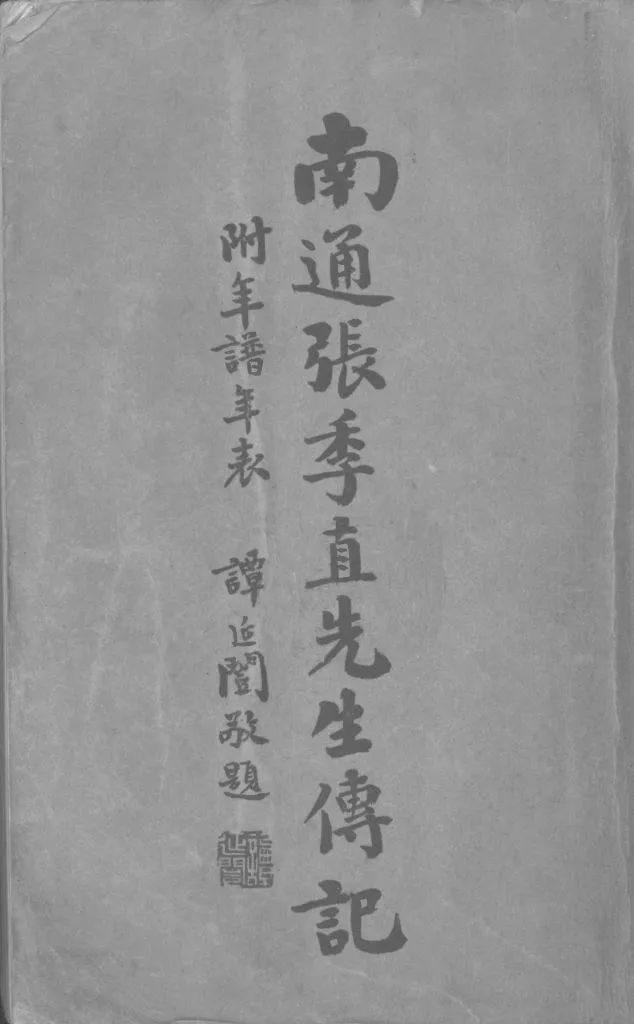 南通張季直先生傳記
附年譜年表 譚延闓敬題